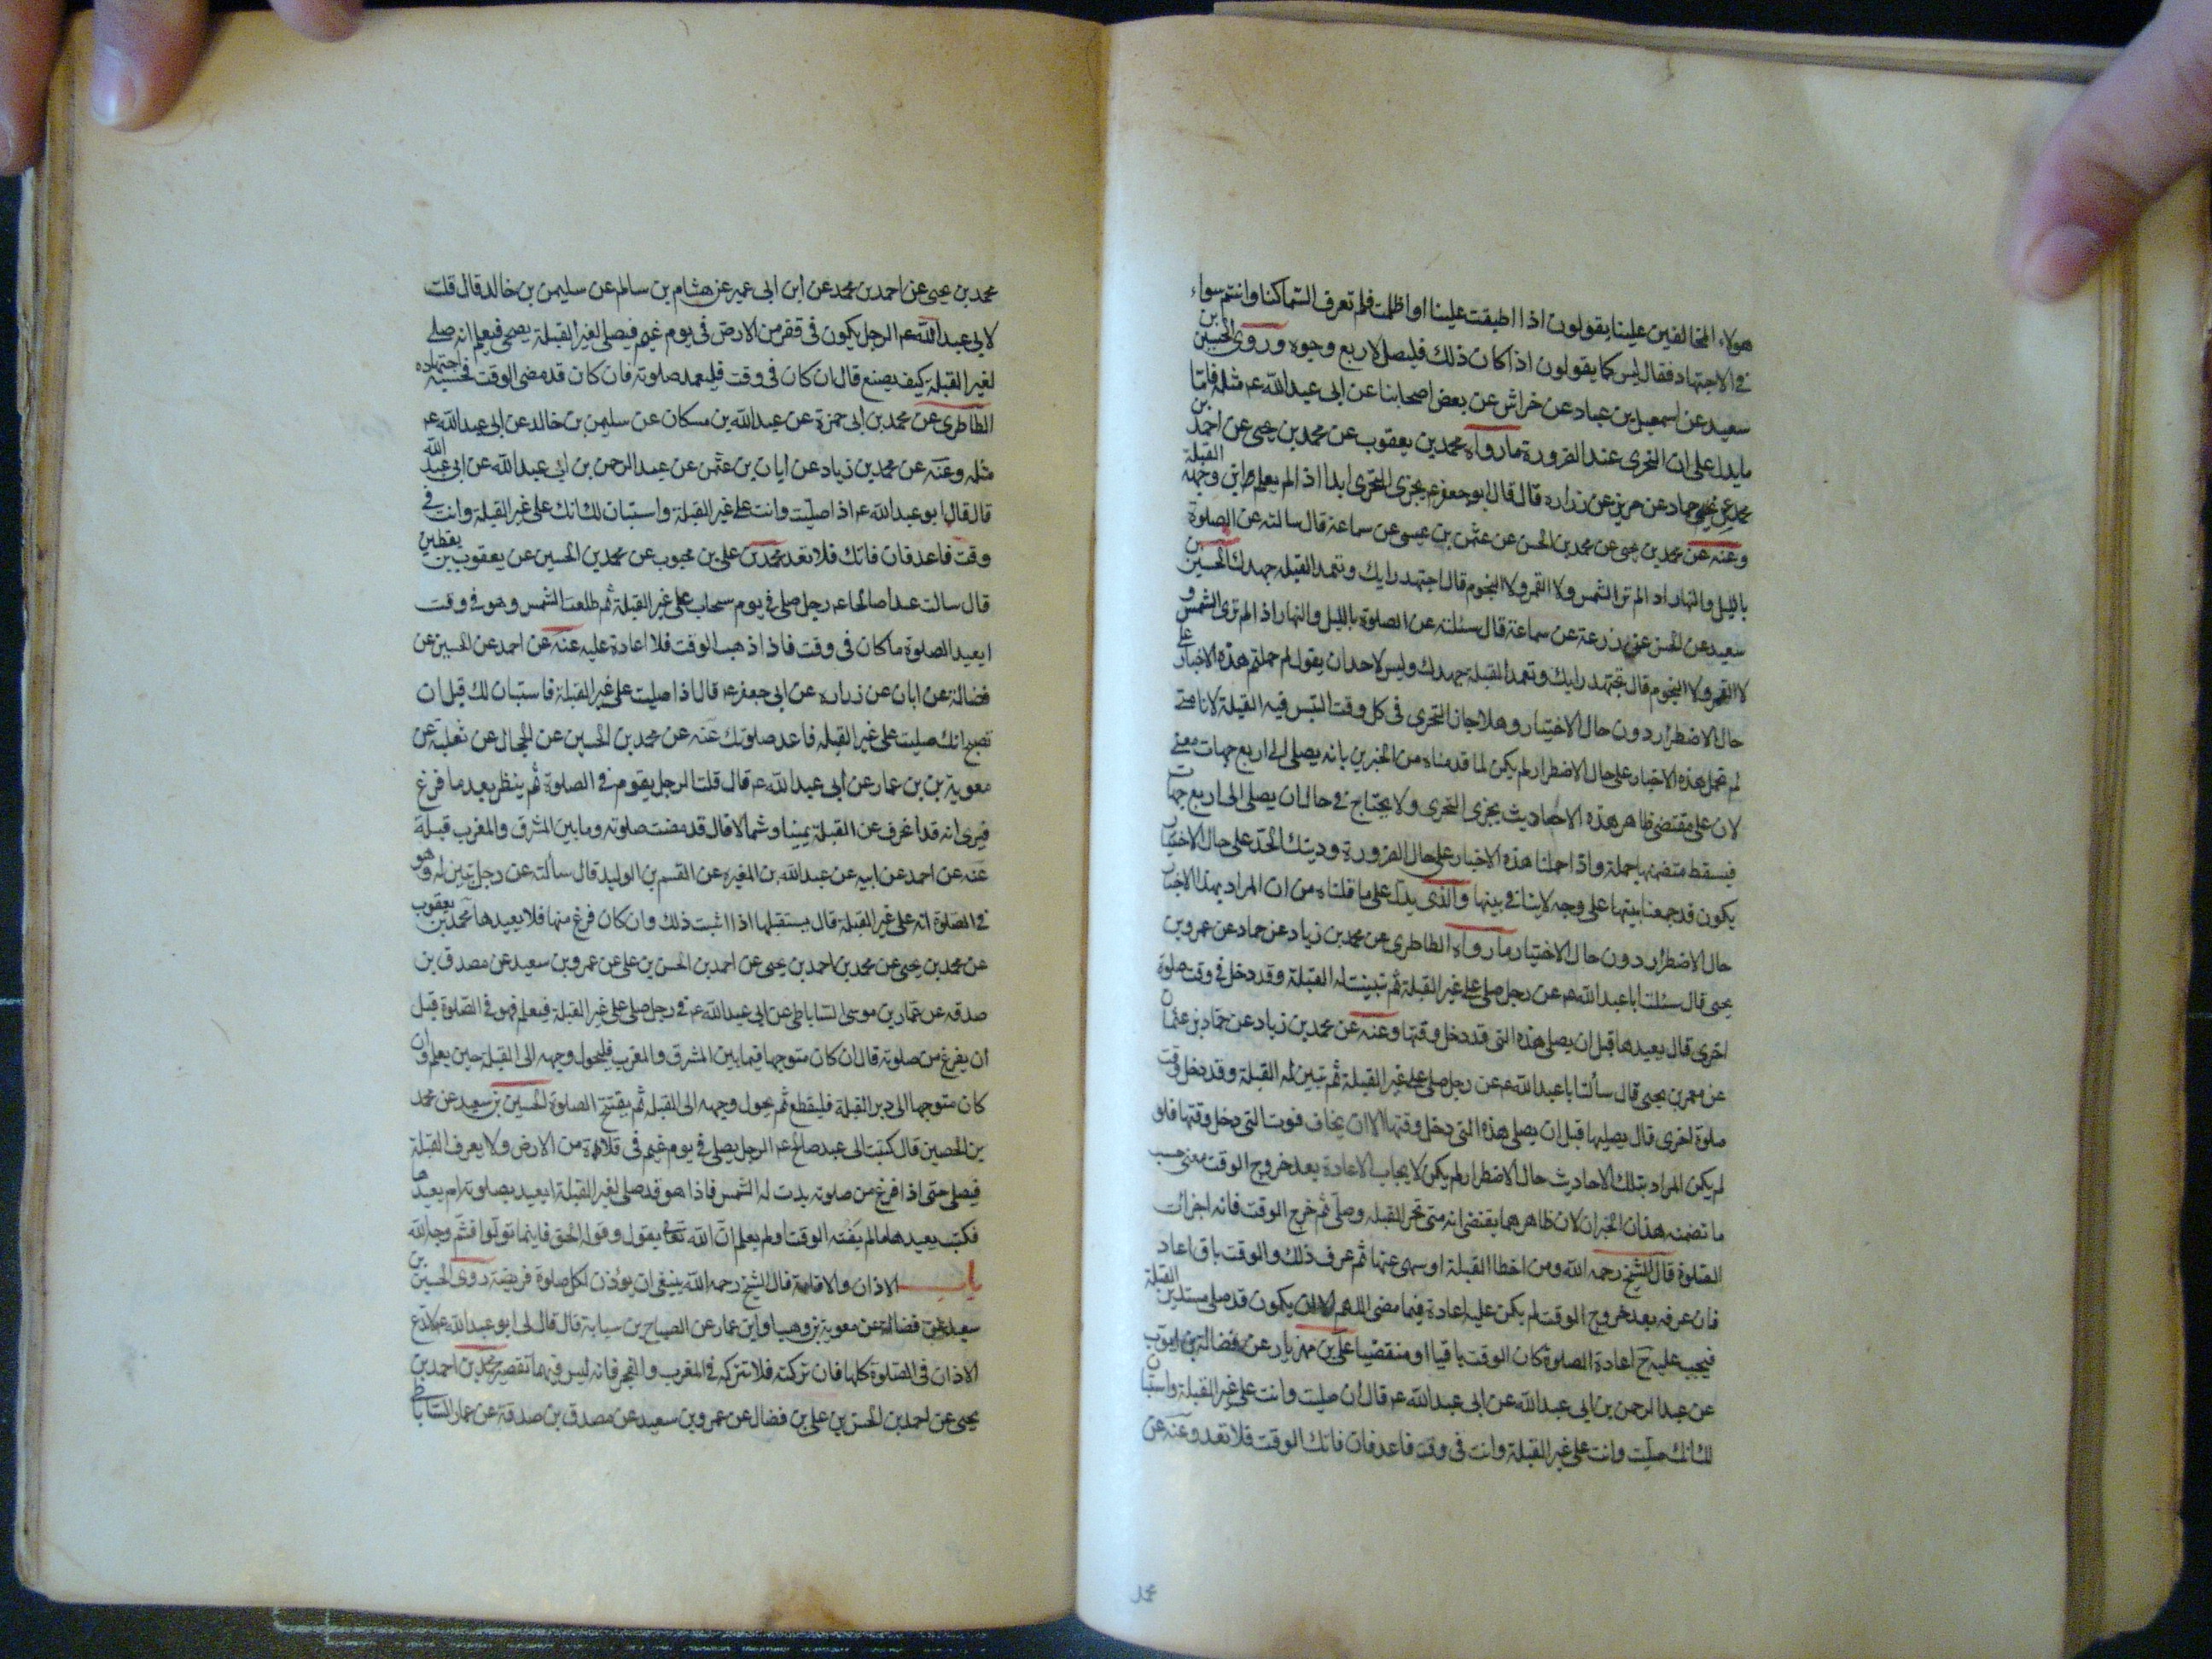 هولاء المخالفين علينا يقولون اذا اطبقت علينا او اظلمت فلم تعرف السماء كنا وانتم سواء
في الاجتهاد فقال ليس كما يقولون اذا كان ذلك فليصل لاربع وجوه وروى الحسين بن
سعيد عن اسمعيل بن عباد عن خراش عن بعض اصحابنا عن ابى عبد الله عم مثله فاما
ما يدل على ان التحرى عند الضرورة ما رواه محمد بن يعقوب عن محمد بن يحيى عن احمد بن
محمد عن حماد عن حريز عن زراره قال قال ابو جعفر عم يجزى التحرى ابدا اذا لم يعلم اين وجه القبلة
وعنه عن محمد بن يحيى عن محمد بن الحسن عن عثمن بن عيسى عن سماعة قال سالته عن الصلوة
بالليل والنهار اذا لم تر الشمس ولا القمر ولا النجوم قال اجتهد رايك وتعمد القبله جهدك الحسين بن
سعيد عن الحسن عن زرعة عن سماعة قال سئلته عن الصلوة بالليل والنهار اذا لم ترى الشمس و
لا القمر ولا النجوم قال تجتهد رايك وتعمد القبلة جهدك وليس لاحد ان يقول لم حملتم هذه الاخبار على
حال الاضطرار دون حال الاختيار وهلا جاز التحرى فى كل وقت التبس فيه القبلة لانا متى
لم نحمل هذه الاخبار على حال الاضطرار لم يكن لما قدمناه من الخبرين بانه يصلى الى اربع جهات معنى
لان على مقتضى ظاهر هذه الاحاديث يجزى التحرى ولا يحتاج فى حال ان يصلى الى اربع جهات
فيسقط متضمنها جملة واذا حملنا هذه الاخبار على حال الضرورة وذينك الخبر على حال الاختيار
يكون قد جمعنا بينها على وجه لا يتنافى بينها والذى يدل على ما قلناه من ان المراد بهذا الاخبار
حال الاضطرار دون حال الاختيار ما رواه الطاطرى عن محمد بن زياد عن حماد عن عمرو بن
يحيى قال سئلت ابا عبد الله عم عن رجل صلى على غير القبلة ثم تبينت له القبلة وقد دخل فى وقت صلوة
اخرى قال يعيدها قبل ان يصلى هذه التى قد دخل وقتها وعنه عن محمد بن زياد عن حماد بن عثمان
عن معمر بن يحيى قال سألت ابا عبد الله عم عن رجل صلى على غير القبلة ثم تبين له القبلة وقد دخل وقت
صلوة اخرى قال يصليها قبل ان يصلى هذه التى دخل وقتها الا ان يخاف فوت التى دخل وقتها فلو
لم يكن المراد بتلك الاحاديث حال الاضطرار لم يكن لايجاب الاعادة بعد خروج الوقت معنى حسب
ما تضمنه هذان الخبران لان ظاهرهما يقتضى انه متى تحر القبله وصلى ثم خرج الوقت فانه اجزات
الصلوة قال الشيخ رحمه الله ومن اخطا القبلة او سهى عنها ثم عرف ذلك والوقت باق اعاد
فان عرفه بعد خروج الوقت لم يكن عليه اعادة فيما مضى اللهم الا ان يكون قد صلى مستدبر القبلة
فيجب عليه ح اعادة الصلوة كان الوقت باقيا او منقضيا على بن مهزيار عن فضالة بن ايوب
عن عبد الرحمن بن ابى عبد الله عن ابى عبد الله عم قال ان صليت وانت على غير القبلة واستبان
لك انك صليت وانت على غير القبلة وانت فى وقت فاعد فان فاتك الوقت فلا تعد وعنه عن
محمد
محمد بن يحيى عن احمد بن محمد عن ابن ابى عمير عن هشام بن سالم عن سليمن بن خالد قال قلت
لابى عبد الله عم الرجل يكون فى قفر من الارض فى يوم غيم فيصلى لغير القبلة يصحى فيعلم انه صلى
لغير القبلة كيف يصنع قال ان كان فى وقت فليعد صلوته فان كان قد مضى الوقت فحسبه اجتهاده
الطاطرى عن محمد بن ابى حمزة عن عبد الله بن مسكان عن سليمن بن خالد عن ابى عبد الله عم
مثله وعنه عن محمد بن زياد عن ابان بن عثمن عن عبد الرحمن بن ابى عبد الله عن ابى عبد الله
قال قال ابو عبد الله عم اذا صليت وانت على غير القبلة واستبان لك انك على غير القبلة وانت فى
وقت فاعد فان فاتك فلا تعد محمد بن على بن محبوب عن محمد بن الحسين عن يعقوب بن يقطين
قال سالت عبدا صالحا عم رجل صلى فى يوم سحاب على غير القبلة ثم طلعت الشمس وهو فى وقت
ايعيد الصلوة ما كان فى وقت فاذا ذهب الوقت فلا اعادة عليه عنه عن احمد عن الحسين عن
فضالة عن ابان عن زراره عن ابى جعفر عم قال اذا صليت على غير القبلة فاستبان لك قبل ان
تصبح انك صليت على غير القبله فاعد صلوتك عنه عن محمد بن الحسين عن الحجال عن ثعلبة عن
معوية بن بن عمار عن ابى عبد الله عم قال قلت الرجل يقوم فى الصلوة ثم ينظر بعد ما فرغ
فيرى انه قد انحرف عن القبلة يمينا وشمالا قال قد مضت صلوته وما بين المشرق والمغرب قبلة
عنه عن احمد عن ابيه عن عبد الله بن المغيره عن القسم بن الوليد قال سألته عن رجل تبين له وهو
فى الصلوة انه على غير القبلة قال يستقبلها اذا اثبت ذلك وان كان فرغ منها فلا يعيدها محمد بن يعقوب
عن محمد بن يحيى عن محمد بن احمد بن يحيى عن احمد بن الحسن بن على عن عمرو بن سعيد عن مصدق بن
صدقه عن عمار بن موسى الساباطى عن ابى عبد الله عم فى رجل صلى على غير القبلة فيعلم فهو فى الصلوة قبل
ان يفرغ من صلوته قال ان كان متوجها فيما بين المشرق والمغرب فليحول وجهه الى القبلة حين يعلم وان
كان متوجها الى دبر القبلة فليقطع ثم يحول وجهه الى القبله ثم يفتتح الصلوة الحسين بن سعيد عن محمد
بن الحصين قال كتبت الى عبد صالح عم الرجل يصلى فى يوم غيم فى فلاة من الارض ولا يعرف القبلة
فيصلى حتى اذا فرغ من صلوته بدت له الشمس فاذا هو قد صلى لغير القبلة ايعتد بصلوته ام يعيدها
فكتب يعيدها ما لم يفته الوقت اولم يعلم ان الله تعالى يقول وقوله الحق فاينما تولوا فثم وجه الله
باب الاذان والاقامة قال الشيخ رحمه الله ينبغى ان يؤذن لكل صلوة فريضة روى الحسين بن
سعيد عن فضالة عن معوية بن وهب او ابن عمار عن الصباح بن سيابة قال قال لى ابو عبد الله عم لا تدع
الاذان فى الصلوة كلها فان تركته فلا تتركه فى المغرب والفجر فانه ليس فيهما تقصير محمد بن احمد بن
يحيى عن احمد بن الحسن بن على بن فضال عن عمرو بن سعيد عن مصدق بن صدقة عن عمار الساباطى